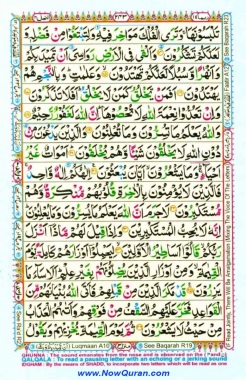 تَلْبَسُونَهَا وَتَرَى الْفُلْكَ مَوَاخِرَ فِيهِ وَلِتَبْتَغُوا مِنْ فَضْلِهِ وَ
لَعَلَّكُمْ تَشْكُرُونَ وَأَلْقَى فِي الْأَرْضِ رَوَاسِيَ أَنْ تَمِيدَ بِكُمْ
وَأَنْهَارًا وَسُبُلًا لَعَلَّكُمْ تَهْتَدُونَ وَعَلَامَاتٍ وَبِالنَّجْمِ هُمْ
يَهْتَدُونَ أَفَمَنْ يَخْلُقُ كَمَنْ لَا يَخْلُقُ أَفَلَا تَذَكَّرُونَ
وَإِنْ تَعُدُّوا نِعْمَةَ اللَّهِ لَا تُحْصُوهَا إِنَّ اللَّهَ لَغَفُورٌ رَحِيمٌ
وَاللَّهُ يَعْلَمُ مَا تُسِرُّونَ وَمَا تُعْلِنُونَ وَالَّذِينَ يَدْعُونَ مِنْ
دُونِ اللَّهِ لَا يَخْلُقُونَ شَيْئًا وَهُمْ يُخْلَقُونَ أَمْوَاتٌ غَيْرُ
أَحْيَاءٍ وَمَا يَشْعُرُونَ أَيَّانَ يُبْعَثُونَ إِلَهُكُمْ إِلَهٌ وَاحِدٌ
فَالَّذِينَ لَا يُؤْمِنُونَ بِالْآخِرَةِ قُلُوبُهُمْ مُنْكِرَةٌ وَهُمْ
مُسْتَكْبِرُونَ لَا جَرَمَ أَنَّ اللَّهَ يَعْلَمُ مَا يُسِرُّونَ وَمَا يُعْلِنُونَ
إِنَّهُ لَا يُحِبُّ الْمُسْتَكْبِرِينَ وَإِذَا قِيلَ لَهُمْ مَاذَا أَنْزَلَ
رَبُّكُمْ قَالُوا أَسَاطِيرُ الْأَوَّلِينَ لِيَحْمِلُوا أَوْزَارَهُمْ كَامِلَةً يَوْمَ
الْقِيَامَةِ وَمِنْ أَوْزَارِ الَّذِينَ يُضِلُّونَهُمْ بِغَيْرِ عِلْمٍ أَلَا سَاءَ
مَا يَزِرُونَ قَدْ مَكَرَ الَّذِينَ مِنْ قَبْلِهِمْ فَأَتَى اللَّهُ بُنْيَانَهُمْ
مِنَ الْقَوَاعِدِ فَخَرَّ عَلَيْهِمُ السَّقْفُ مِنْ فَوْقِهِمْ وَأَتَاهُمُ الْعَذَابُ
مِنْ حَيْثُ لَا يَشْعُرُونَ ثُمَّ يَوْمَ الْقِيَامَةِ يُخْزِيهِمْ وَيَقُولُ
Luqmaan A10
See Baqarah R19
GHUNNA : The sound emanates from the nose and is observed on the
QALQALA : To read a pausing letter with an echoing or a jerking sound
IDGHAM : By the means of SHADD, to incorporate two letters which will be read as one
www.NowQuran.com